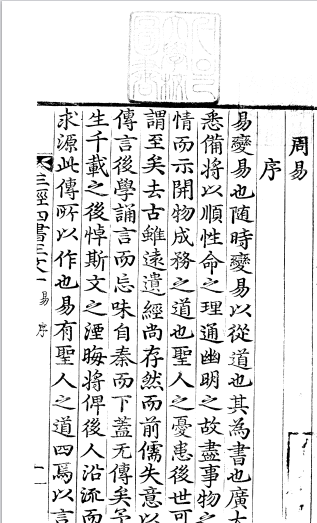 周易
序
易變易也隨時變易以從道也其為書也廣大
悉備將以順性命之理通幽明之故盡事物之
情而示開物成務之道也聖人之憂患後世可
謂至矣去古雖遠遺經尚存然而前儒失意以
傳言後學誦言而忘味自秦而下蓋无傳矣予
生千載之後悼斯文之湮晦將俾後人沿流而
求源此傳所以作也易有聖人之道四焉以言
五經四書正文
易序
一